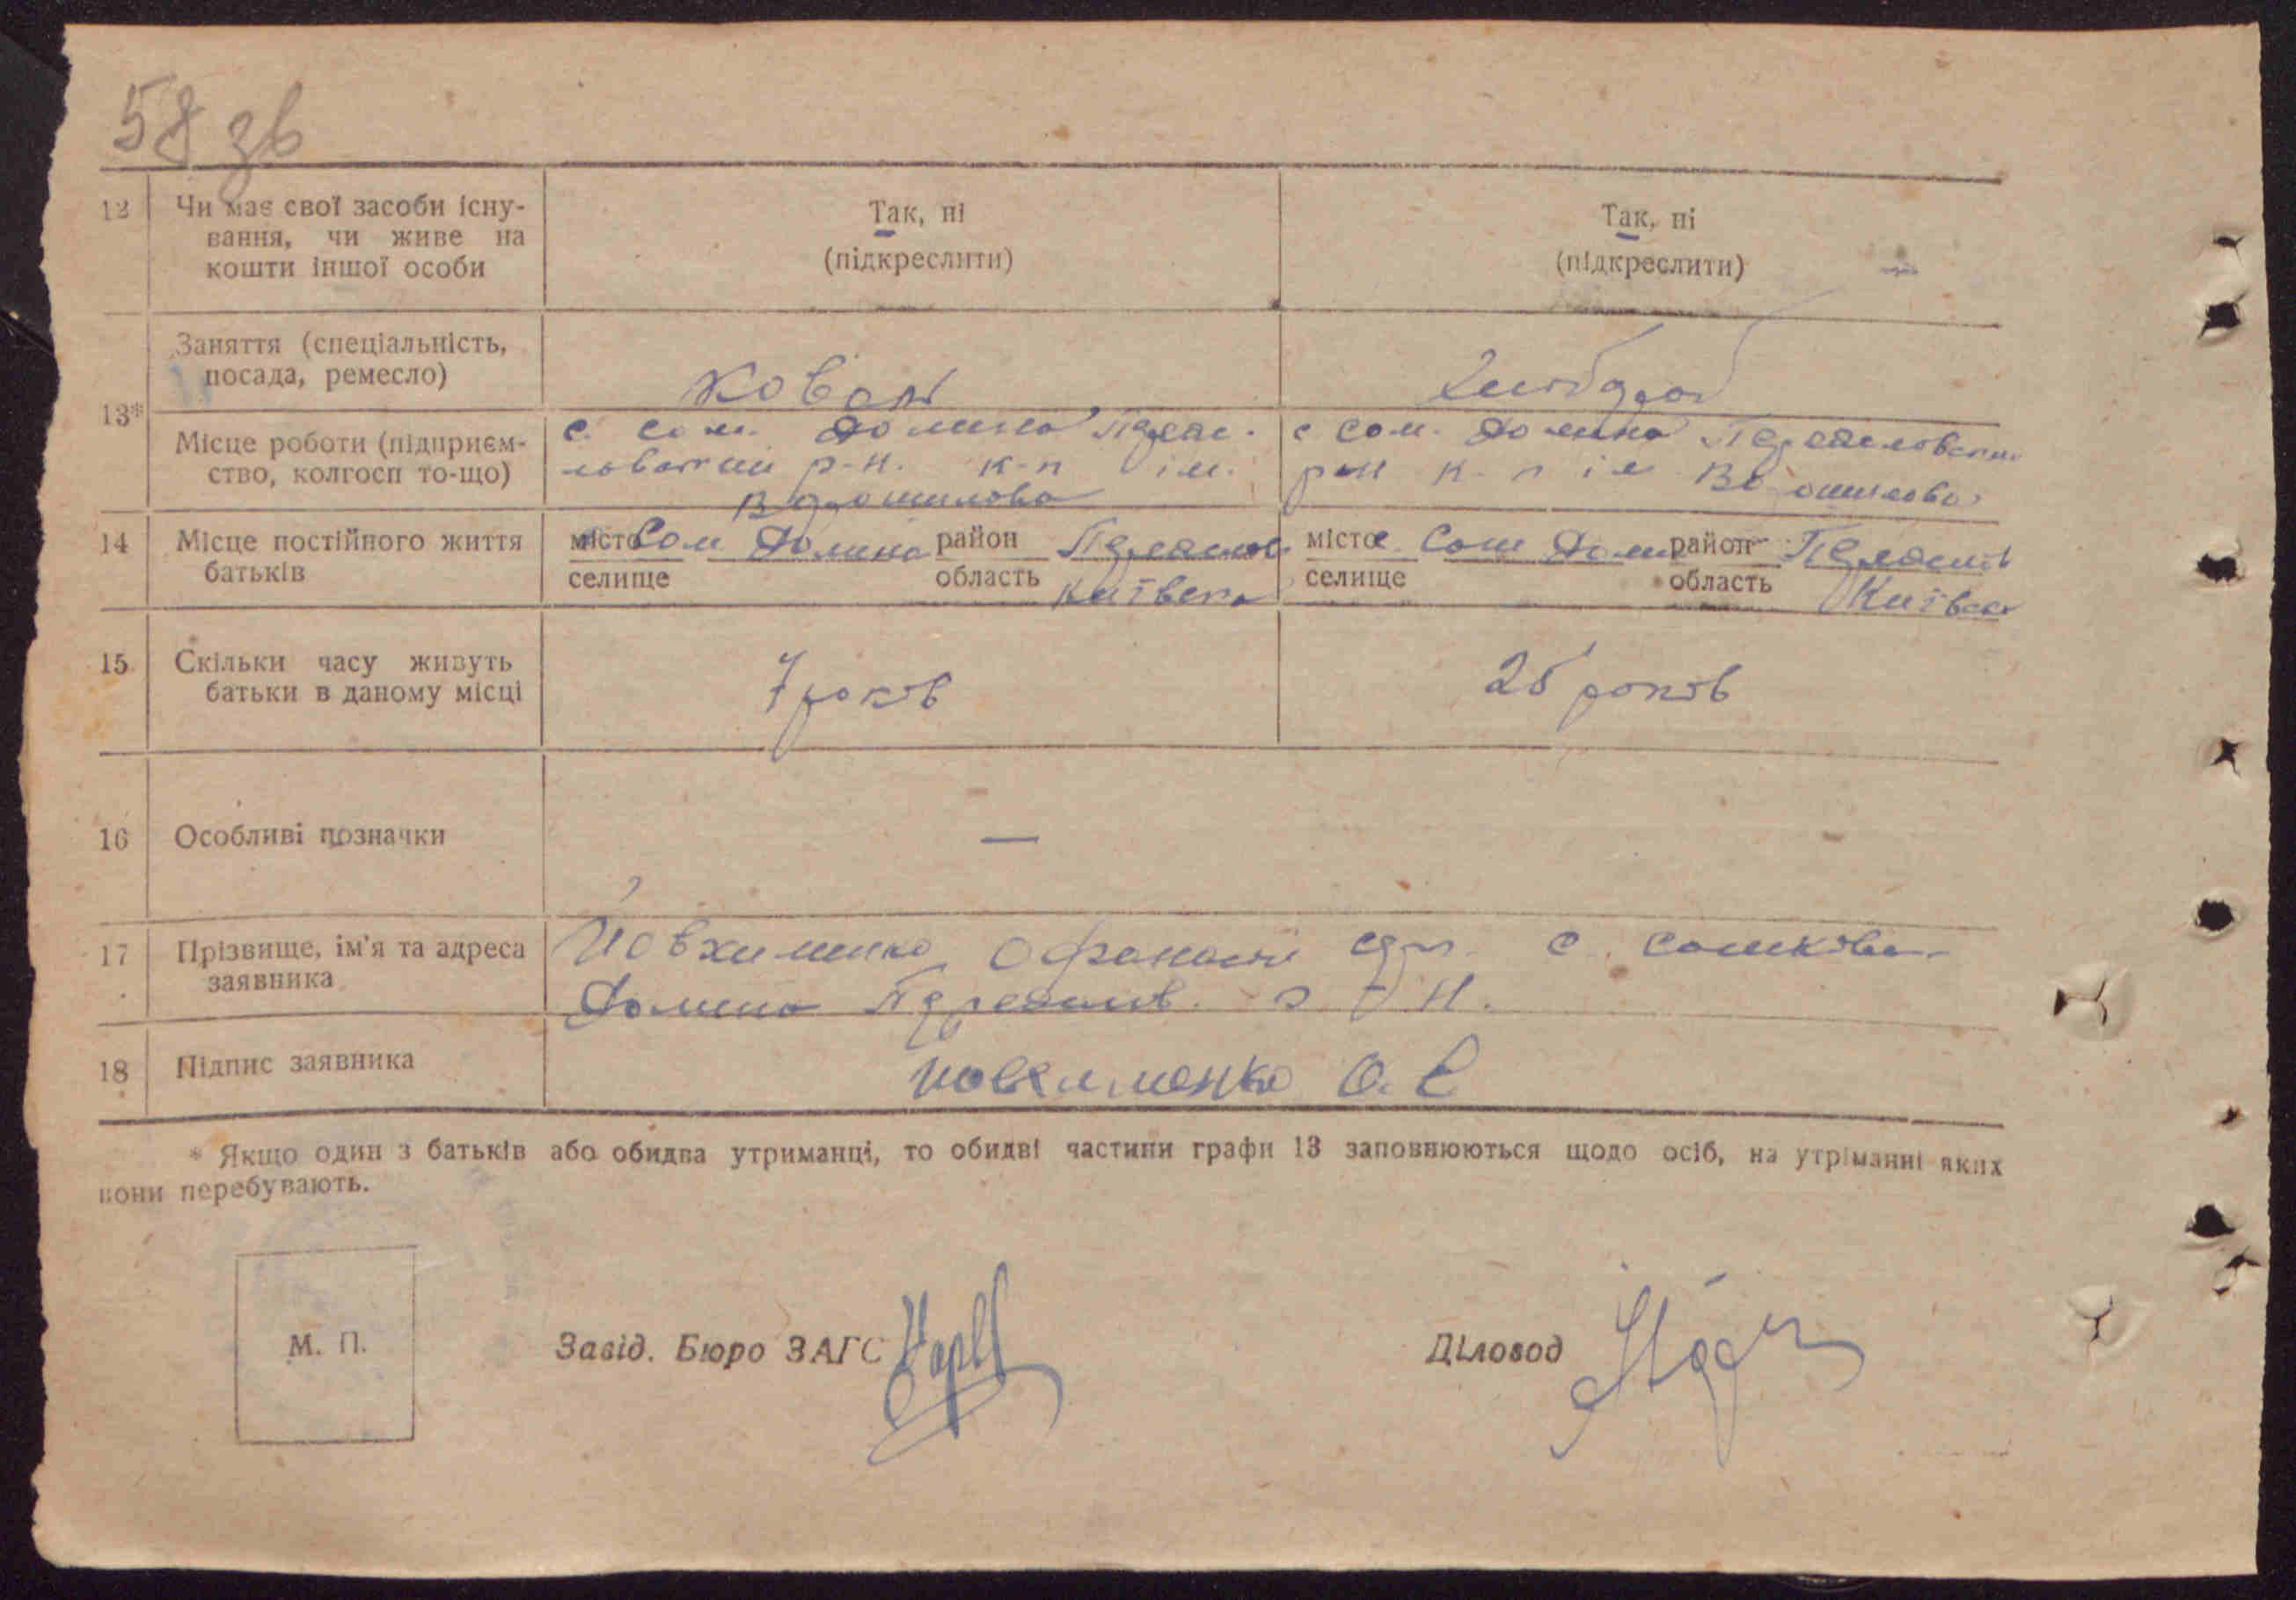 58 зв
12 Чи має свої засоби існу-
вання, чи живе на
кошти іншої особи
Так, ні
(підкреслити)
Так, ні
(підкреслити)
13* Заняття (спеціальність,
посада, ремесло)
Коваль
Хлібороб
Місце роботи (підприєм-
ство, колгосп то-що)
с. Сом. Долина Переяс-
ловський р-н. к-п ім.
Ворошилова
с Сом. Долина Переясловський
р-н к-п ім Ворошилова
14 Місце постійного життя
батьків
місто Сом Долина район Переяслов
селище область Київська
місто с. Сом Долин район Переяслів
селище область Київськ
15 Скільки часу живуть
батьки в даному місці
7 років
25 років
16 Особливі позначки
—
17 Прізвище, ім'я та адреса
заявника
Йовхименко Офанасій с. Сомкова
Долина Переяслів. р-н.
18 Підпис заявника
Йовхименко О. Є
* Якщо один з батьків або обидва утриманці, то обидві частини графи 13 заповнюються щодо осіб, на утріманні яких
вони перебувають.
М. П.
Завід. Бюро ЗАГС
Діловод